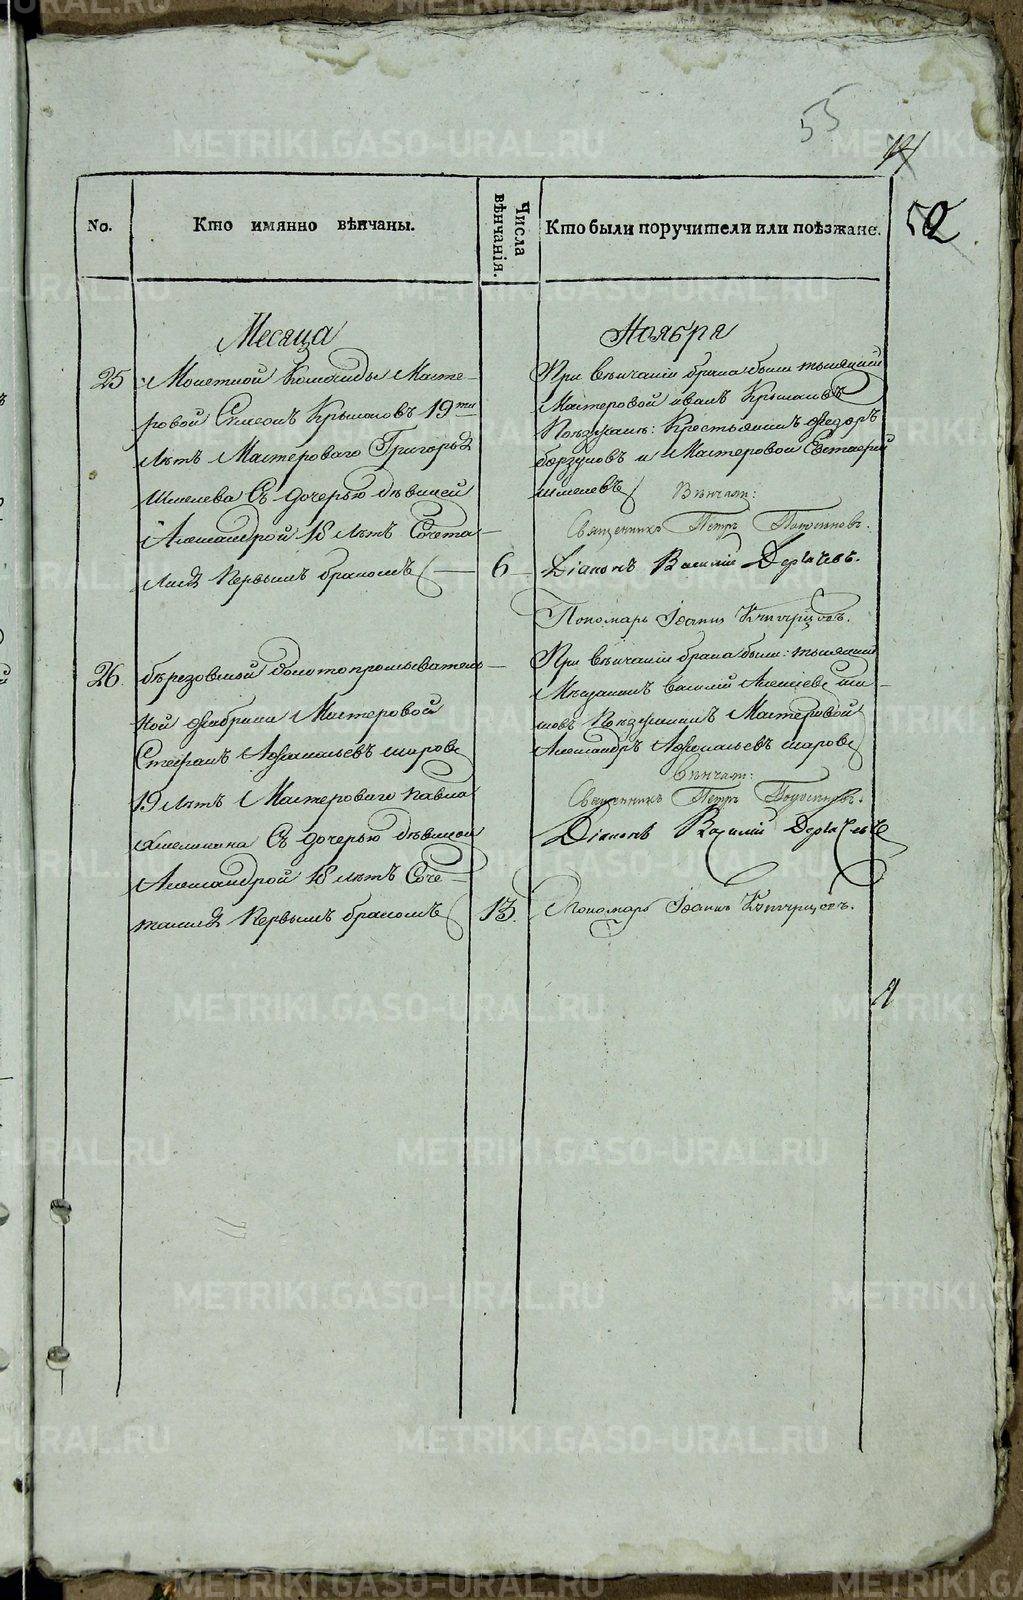 55
52
No.
Кто имянно вѣнчаны.
Числа вѣнчанія.
Кто были поручители или поѣзжане.
Месяца
Ноября
25
Монетной Команды Масте-
ровой Симеонъ Крымовъ 19ти
Лѣтъ Мастероваго Григорья
Шмелева Съ дочерью дѣвицей
Александрой 18 лѣтъ Сочета-
лися Первымъ бракомъ
6
При Вѣнчаніи брака были тысяцкий
Мастеровой Иванъ Крымовъ
Поѣзжанъ: Крестьянинъ Федоръ
и Мастеровой
Шмелевъ
Вѣнчали:
Священникъ Петръ
Діаконъ Василій Дерѧбѧ
Пономарь Іоаннъ
26.
березовской Золотопромыватель-
ной фабрики Мастеровой
Стефанъ Афанасьевъ шаровъ
19 лѣтъ Мастероваго Павла
Съ дочерью дѣвицей
Александрой 18 лѣтъ Соче-
тались Первымъ бракомъ
13.
При Вѣнчаніи брака были: тысяцкий
Мѣщанинъ Василей Алексеевъ ти-
товъ Поѣзжанинъ Мастеровой
Александръ Афонасьевъ шаровъ
Вѣнчали:
Священникъ Петръ
Діаконъ Василій
Пономарь Іоаннъ
METRIKI.GASO-URAL.RU